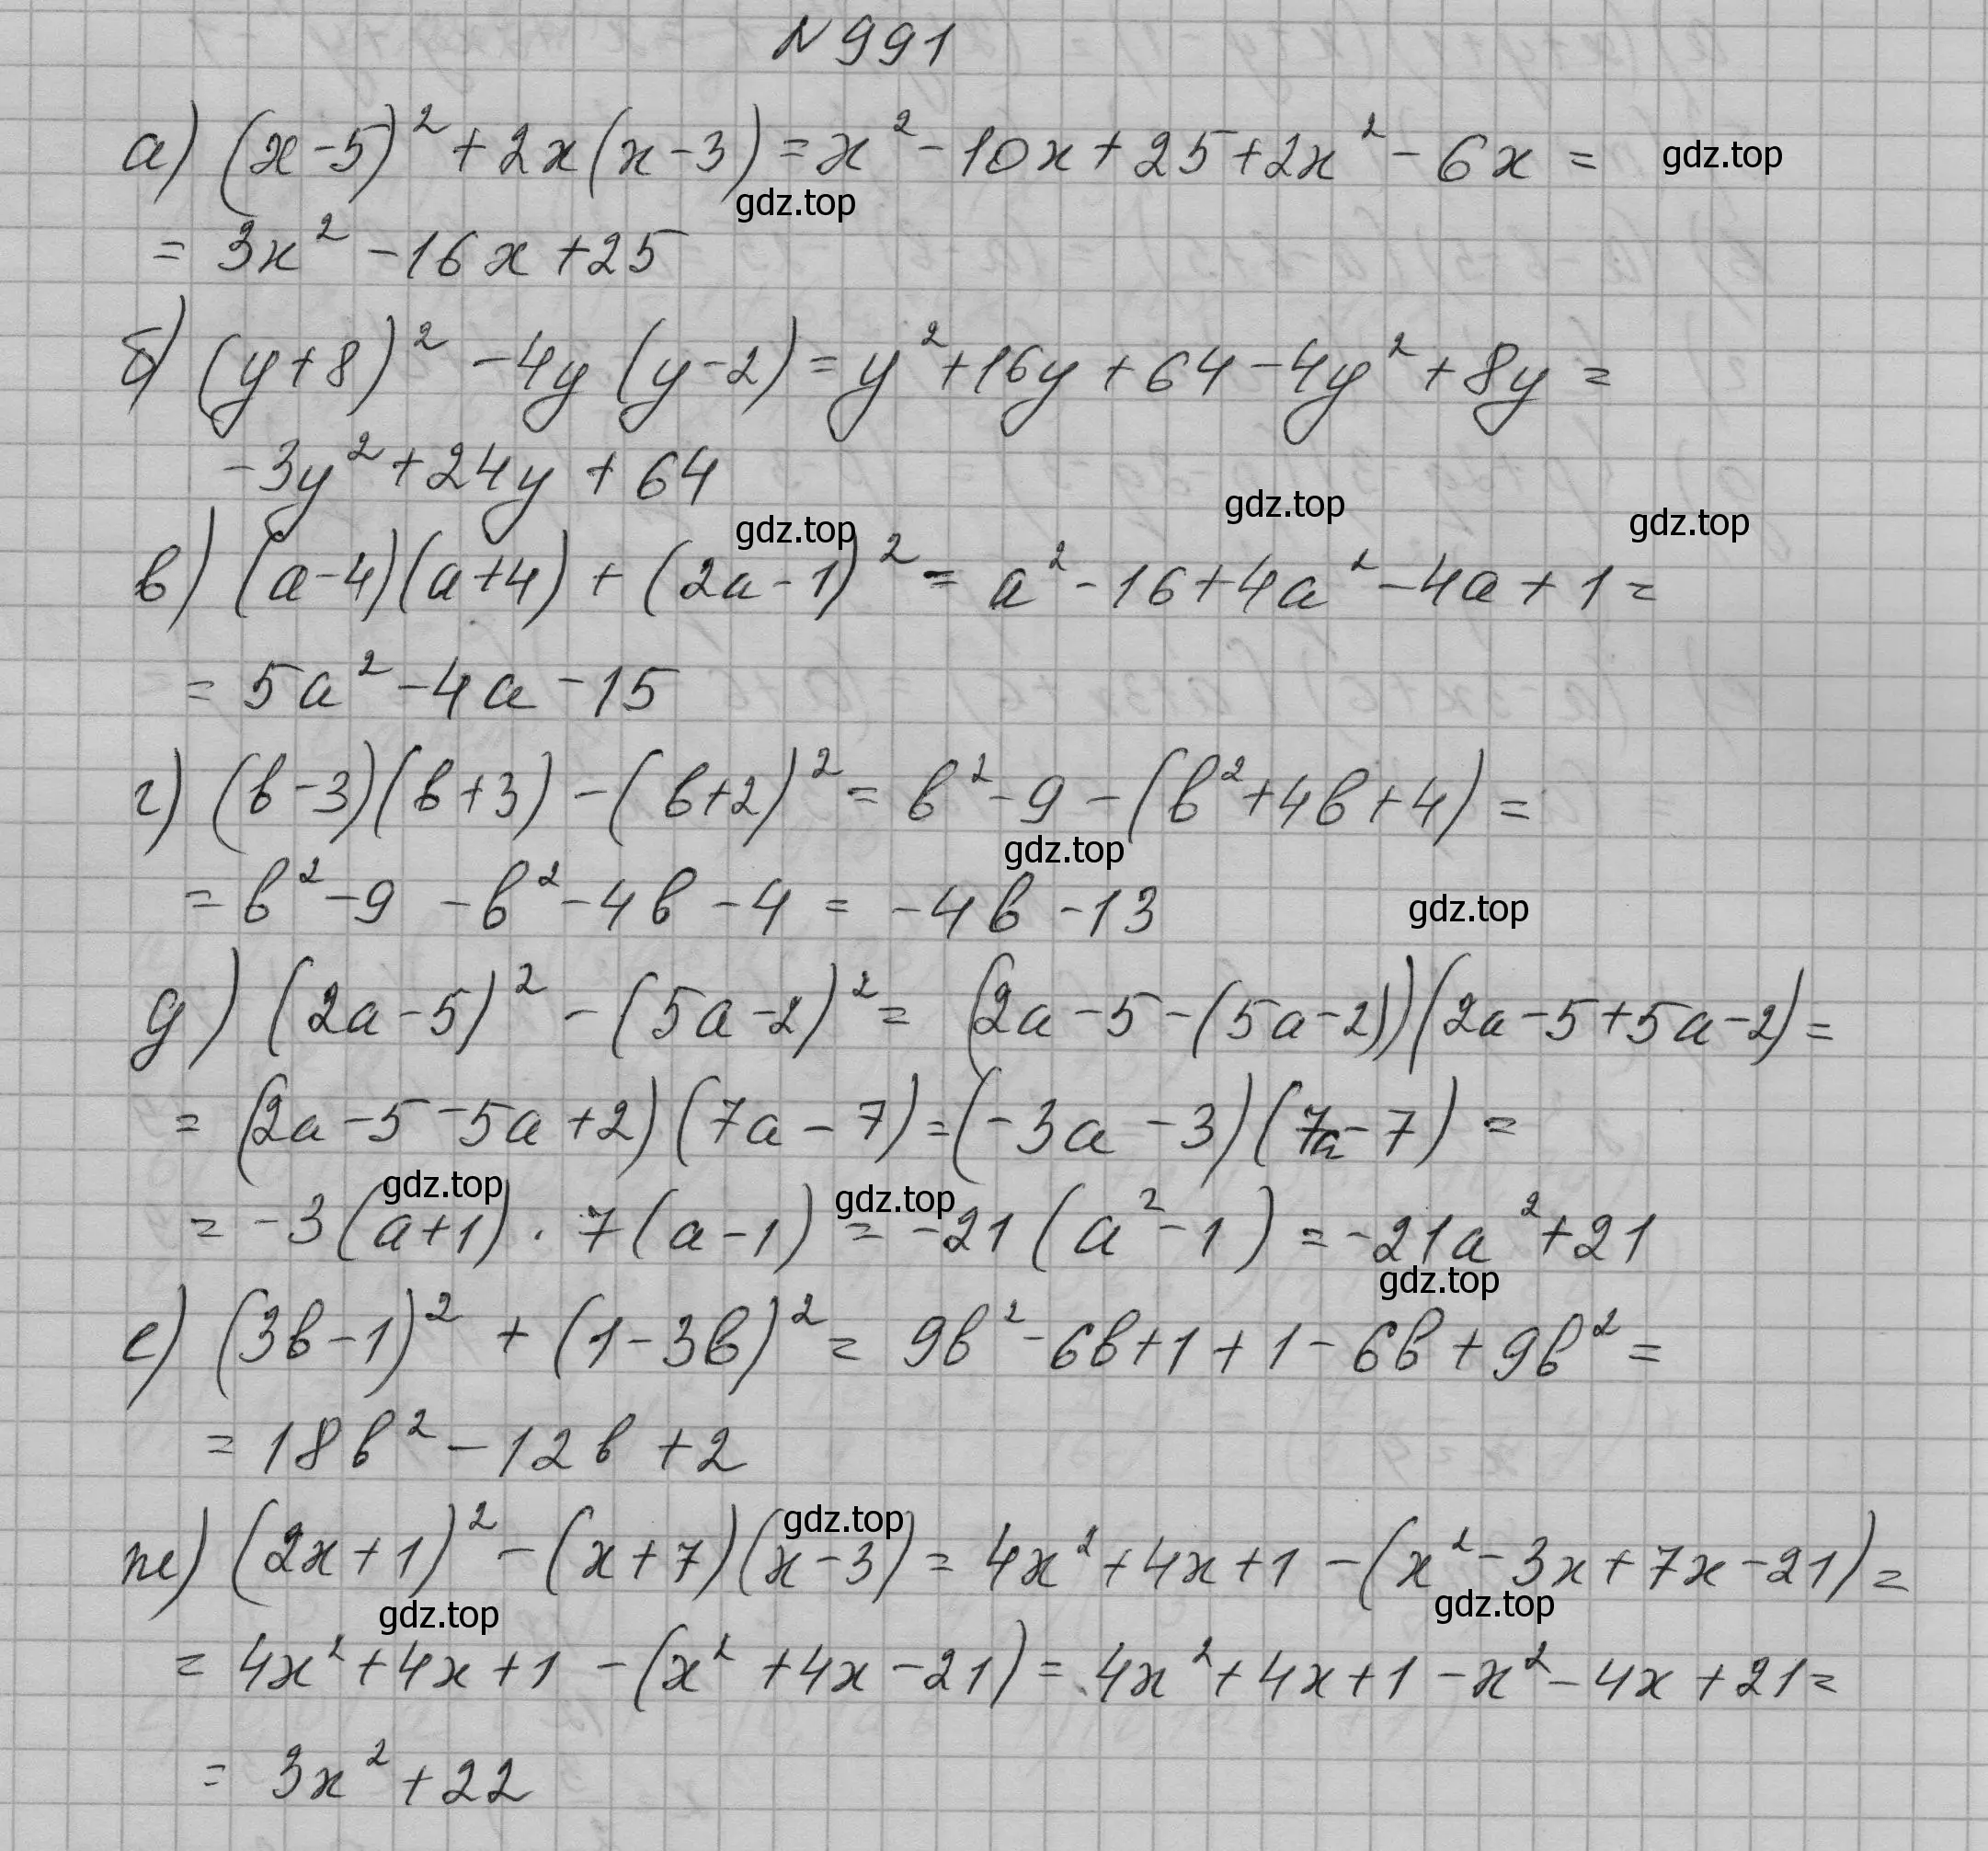 N 991
а) (x-5)² + 2x(x-3) = x² - 10x + 25 + 2x² - 6x =
gdz.top
gdz.top
= 3x² - 16x + 25
б) (y+8)² - 4y(y-2) = y² + 16y + 64 - 4y² + 8y =
- 3y² + 24y + 64
gdz.top
gdz.top
gdz.top
в) (a-4)(a+4) + (2a-1)² = a² - 16 + 4a² - 4a + 1 =
= 5a² - 4a - 15
г) (b-3)(b+3) - (b+2)² = b² - 9 - (b² + 4b + 4) =
gdz.top
= b² - 9 - b² - 4b - 4 = -4b - 13
gdz.top
д) (2a-5)² - (5a-2)² = (2a-5-(5a-2))(2a-5+5a-2) =
= (2a-5-5a+2)(7a-7) = (-3a-3)(7a-7) =
gdz.top
gdz.top
= -3(a+1) · 7(a-1) = -21(a²-1) = -21a² + 21
gdz.top
е) (3b-1)² + (1-3b)² = 9b² - 6b + 1 + 1 - 6b + 9b² =
= 18b² - 12b + 2
gdz.top
ж) (2x+1)² - (x+7)(x-3) = 4x² + 4x + 1 - (x² - 3x + 7x - 21) =
gdz.top
gdz.top
= 4x² + 4x + 1 - (x² + 4x - 21) = 4x² + 4x + 1 - x² - 4x + 21 =
= 3x² + 22